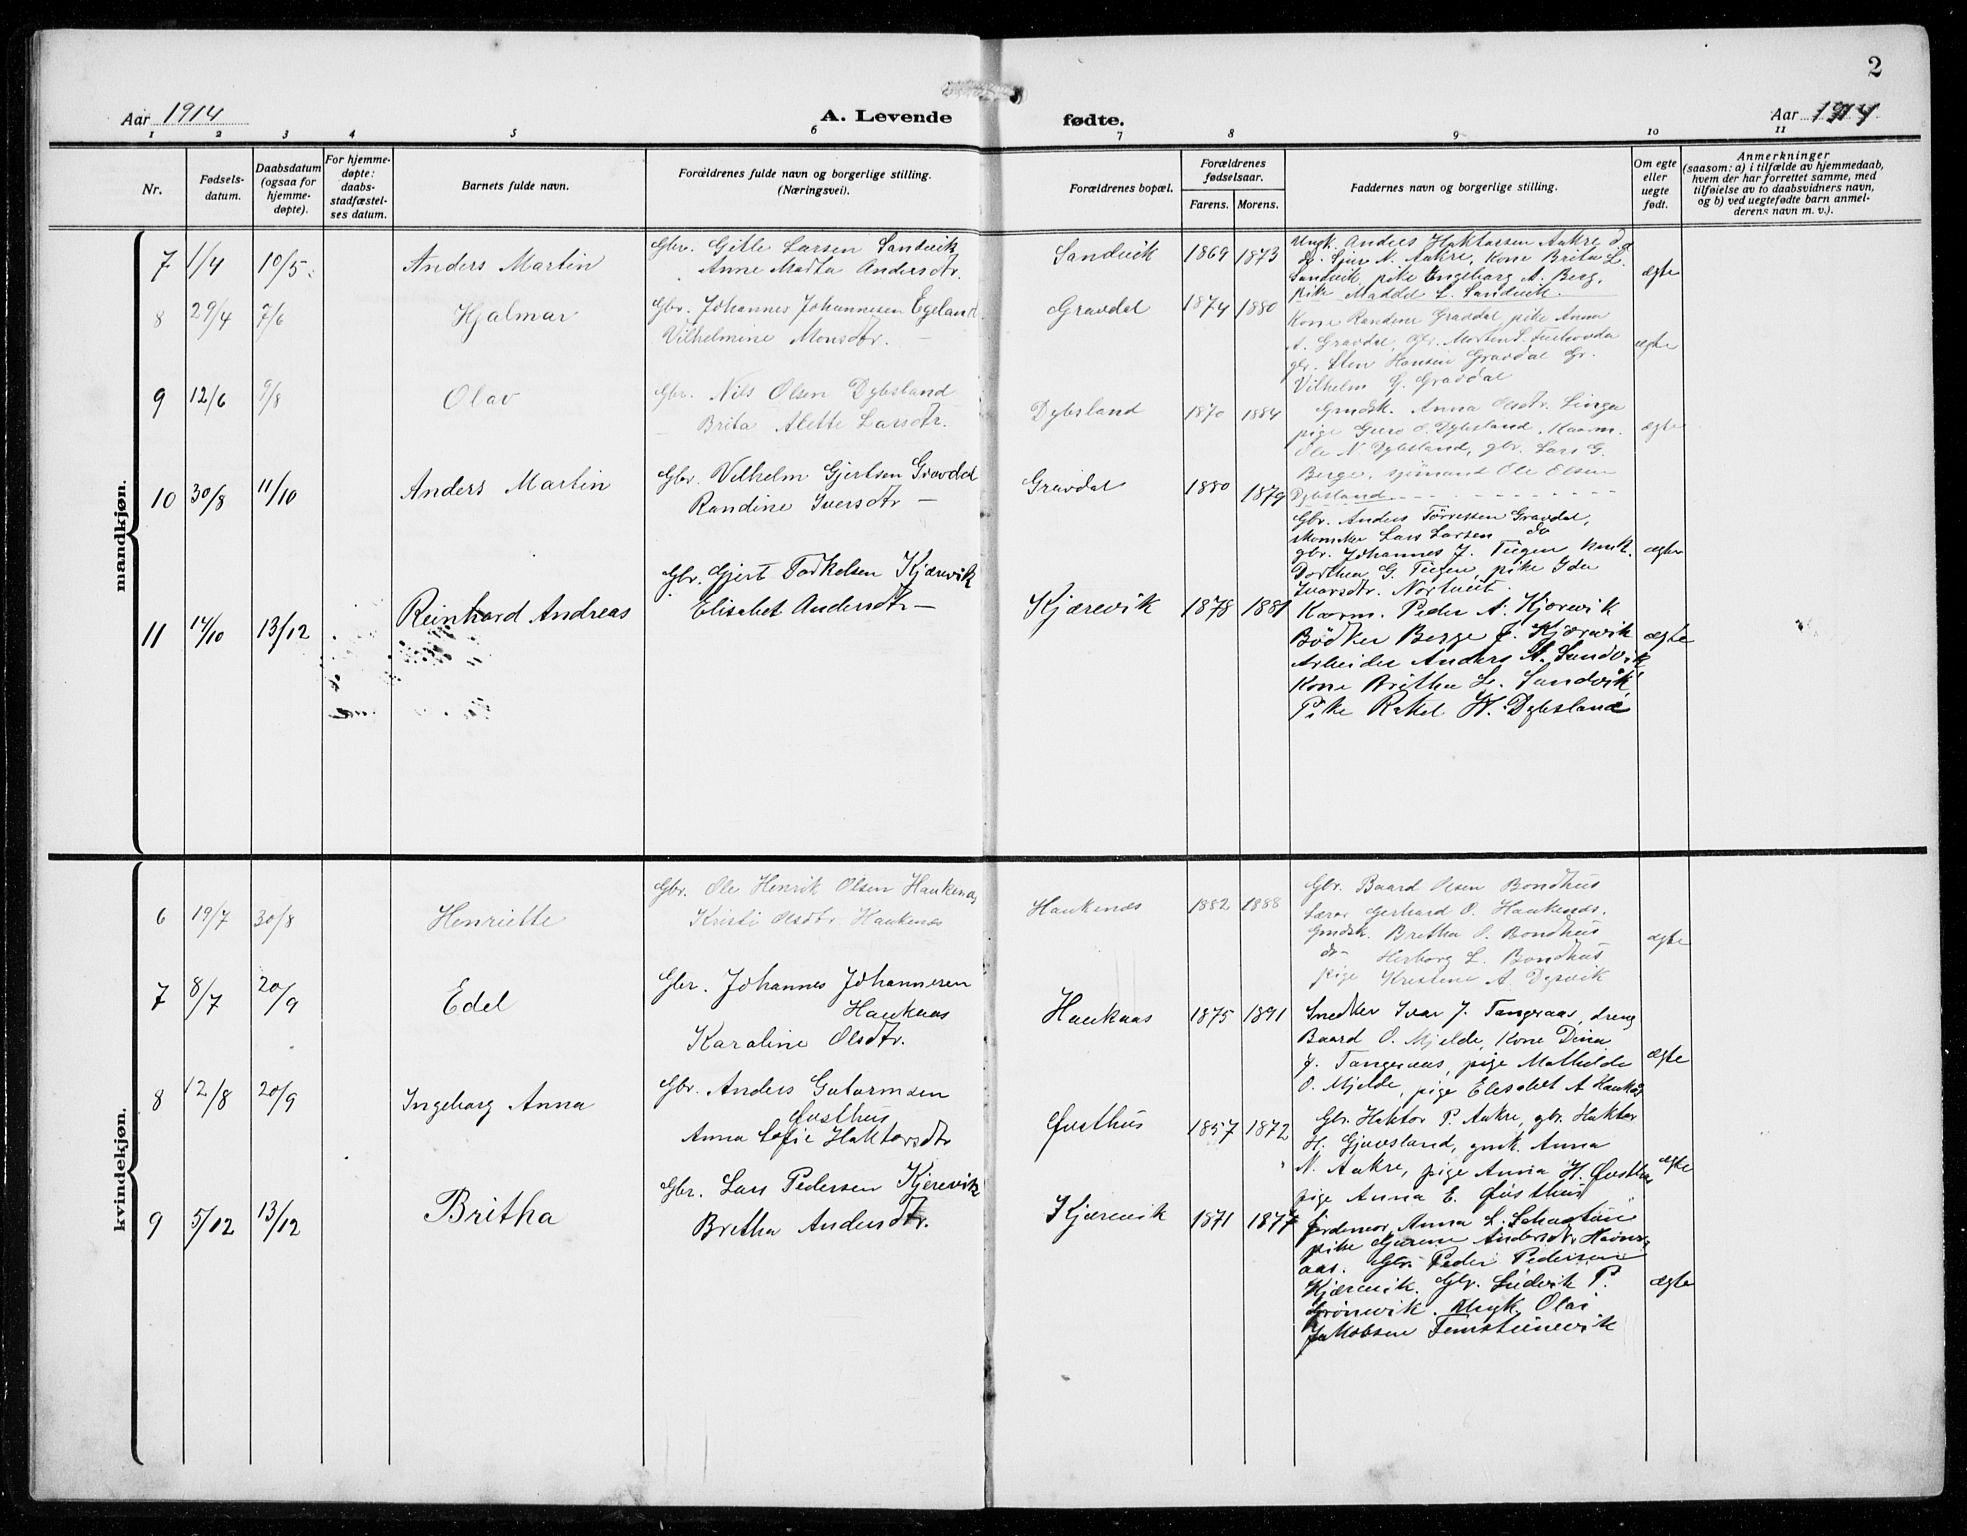 2
Aar 1914
A. Levende fødte.
Aar 1914
1 2 3 4 5 6 7 8 9 10 11
Nr.
Fødsels-
datum.
Daabsdatum
(ogsaa for
hjemme-
døpte).
For hjemme-
døpte:
daabs-
stadfæstel-
ses datum.
Barnets fulde navn.
Forældrenes fulde navn og borgerlige stilling.
(Næringsvei).
Forældrenes bopæl.
Forældrenes
fødselsaar.
Farens. Morens.
Faddernes navn og borgerlige stilling.
Om egte
eller
uegte
født.
Anmerkninger
(saasom: a) i tilfælde av hjemmedaab,
hvem der har forrettet samme, med
tilføielse av to daabsvidners navn,
og b) ved uegtefødte barn anmel-
derens navn m. v.).
mandkjøn.
7 1/4 10/5 Anders Martin
Gbr. Gitle Larsen Sandvik
Anne Marta Andersdtr.
Sandvik 1869 1873
Ungk. Anders Haktorsen Aakre
N. Aakre, Kone Brita L.
Sandvik pike Engeborg A. Berg,
pike L. Sandvik.
ægte
8 29/4 7/6 Hjalmar
Gbr. Johannes Johannesen Egeland
Vilhelmine Monsdtr. —
Gravdal 1874 1880
Kone Randine Gravdal, pike Anna
A. Gravdal,
gbr. Sten Hansen Gravdal
Vilhelm G. Gravdal
ægte
9 12/6 9/8 Olav
Gbr. Nils Olsen Dybsland
Brita Alette Larsdtr.
Dybsland 1870 1884
Gmdsk. Anna Olsdtr. Linga
pige Guro O. Dybsland,
Ole N. Dybsland, gbr. Lars G.
Berge, sjømand Ole Olsen
Dybsland
ægte
10 30/8 11/10 Anders Martin
Gbr. Vilhelm Gjertsen Gravdal
Randine Iversdtr —
Gravdal 1880 1879
Gbr. Anders Tørressen Gravdal,
Lars Larsen do
gbr. Johannes J. Teigen
Dorthea G. Teigen pike Ida
Ivarsdtr. Nortveit.
ægte
11 14/10 13/12 Reinhard Andreas
Gbr. Gjert Torkelsen Kjærevik
Elisabet Andersdtr —
Kjærevik 1878 1881
Kaarm. Peder A. Kjærevik
Bødker Berge T. Kjærevik
Arbeider Anders A. Sandvik
Kone Britha L. Sandvik
Pike Rakel H. Dybsland
ægte
kvindekjøn.
6 19/7 30/8 Henriette
Gbr. Ole Henrik Olsen Haukenæs
Kristi Olsdtr Haukenæs
Haukenæs 1882 1888
Gbr. Baard Olsen Bondhus
Lærer Gerhard O. Haukenæs.
Gmdsk. Bretha O. Bondhus
do- Herborg L. Bondhus
pige Kristine A. Dysvik
ægte
7 8/7 20/9 Edel
Gbr. Johannes Johannesen
Haukaas
Karoline Olsdtr.
Haukaas 1875 1891
Snedker Ivar J. Tangeraas, dreng
Baard O. Mjelde, Kone Dina
J. Tangeraas, pige Mathilde
O. Mjelde, pige Elisabet A Haukås
ægte
8 12/8 20/9 Ingeborg Anna
Gbr. Anders Gutormsen
Øvsthus
Anna Sofie Haktorsdtr
Øvsthus 1857 1872
Gbr. Haktor P. Aakre, gbr. Haktor
H. Gjøvsland, gmk. Anna
N. Aakre, pige Anna H. Øvsthus
pige Anna E. Øvsthus
ægte
9 5/12 13/12 Britha
Gbr. Lars Pedersen Kjerevik
Bretha Andersdtr.
Kjærevik 1871 1877
Jordemor Anna L.
pike Gurine Andersdtr.
aas. Gbr. Peder Pedersen
Kjærevik, Gbr. Ludvik P.
Grønevik. Ungk. Olai
Jakobsen Femsteinevik
ægte